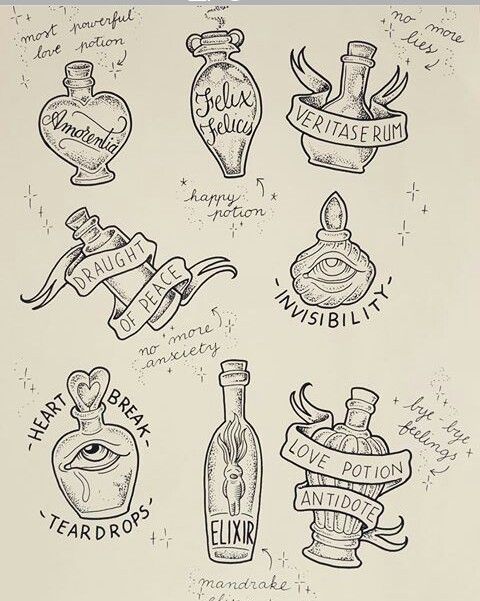 most powerful
love potion
no more
lies
Amorentia
Felix
Felicis
VERITASERUM
happy
potion
DRAUGHT
OF PEACE
INVISIBILITY
no more
anxiety
HEART BREAK
TEARDROPS
ELIXIR
LOVE POTION
ANTIDOTE
bye-bye
feelings
mandrake